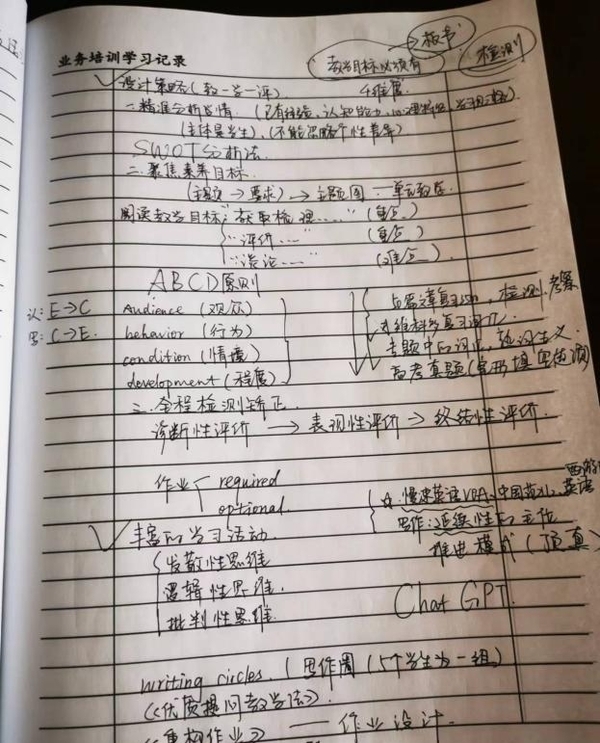 业务培训学习记录
教学目标必须有 → 板书 检测
设计策略(教一学一评) 4维度
一.精准分析学情 (已有经验、认知能力、心理特征、学习
(主体是学生)、(不能忽略个性差异)
SWOT分析法.
二.聚焦素养目标.
(主题 → 要求) → 主题图 — 单元教学.
阅读教学目标: "获取梳理....." (重点)
"评价....." (重点)
"谈论....." (难点).
ABCD原则
认: E→C Audience (观众)
写: C→E. behavior (行为)
condition (情境)
development (程度)
检测.考察
对维科与复习
专题中的词汇,
高考真题(完形填空
三.全程检测矫正.
诊断性评价 → 表现性评价 → 终结性评价.
作业 required
optional
☆.慢速英语VOA、中国 英语
写作:延续性的主位
推进模式(顶真)
丰富的学习活动.
发散性思维
逻辑性思维.
批判性思维.
Chat GPT.
writing circles. (写作圈 (5个学生为一组)
《优质提问教学法》.
《重构作业》 —— 作业设计.